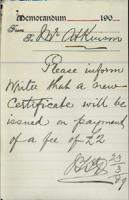 Memorandum 190
From
To Mr Atkinson
Please inform
writer that a new
Certificate will be
issued on payment
of a fee of £2
23
3